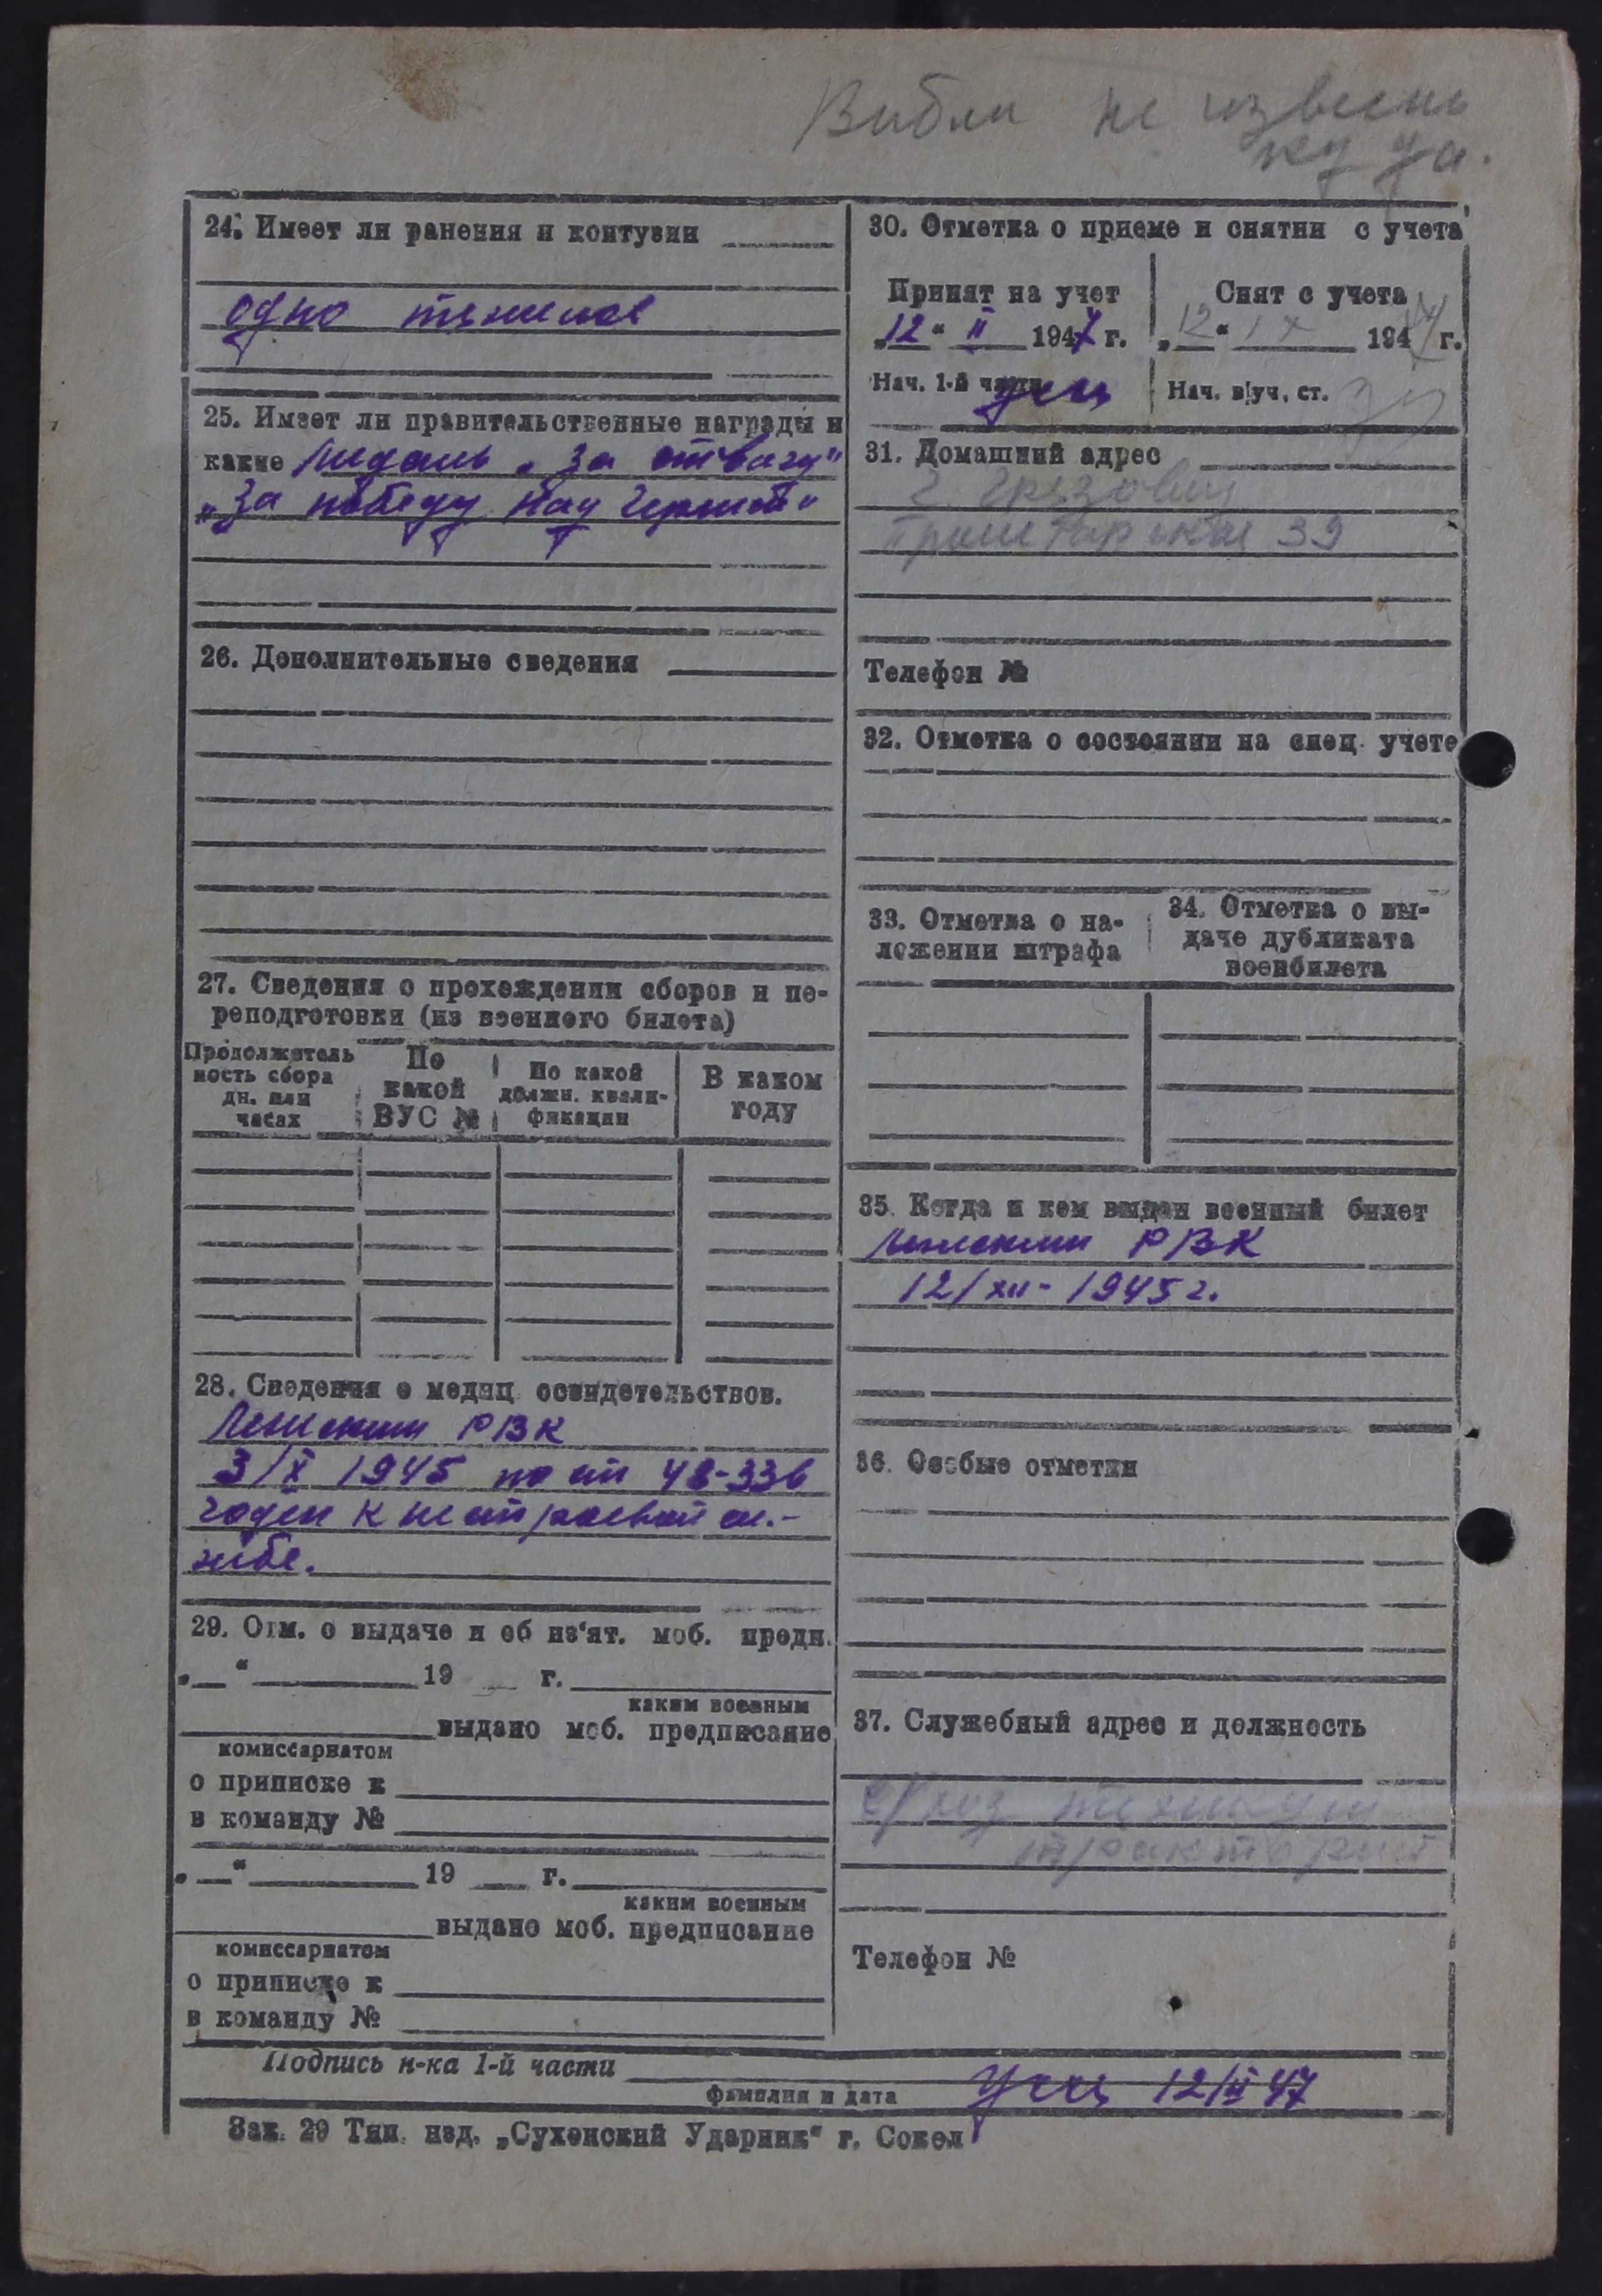 Выбыл не извесно
куда.
24. Имеет ли ранения и контузии
одно тяжелое
25. Имеет ли правительственные награды и
какие медаль „За отвагу"
„За победу над Германией"
26. Дополнительные сведения
27. Сведения о прохождении сборов и пе-
реподготовки (из военного билета)
Продолжитель
ность сбора
дн. или
часах
По
какой
ВУС №
По какой
должн. квали-
фикации
В каком
году
28. Сведения о медиц освидетельствов.
РВК
3/X 1945 по ст 48-336
годен к нестроевой сл.-
жбе.
29. Отм. о выдаче и об из'ят. моб. предп.
„ “ 19 г.
каким военным
выдано моб. предписание
комиссариатом
о приписке к
в команду №
„ “ 19 г.
каким военным
выдано моб. предписание
комиссариатом
о приписке к
в команду №
30. Отметка о приеме и снятии с учета
Принят на учет
„12“ II 1947 г.
Нач. 1-й части
Снят с учета
„12“ IX 194 г.
Нач. в|уч. ст.
31. Домашний адрес
г. Грязовец
Пролетарская 39
Телефон №
32. Отметка о состоянии на спец. учете
33. Отметка о на-
ложении штрафа
34. Отметка о вы-
даче дубликата
военбилета
35. Когда и кем выдан военный билет
РВК
12/XII- 1945 г.
36. Особые отметки
37. Служебный адрес и должность
с/хоз техникум
тракторист
Телефон №
Подпись н-ка 1-й части
фамилия и дата
12/II 47
Зак. 29 Тип. изд. „Сухонский Ударник“ г. Сокол